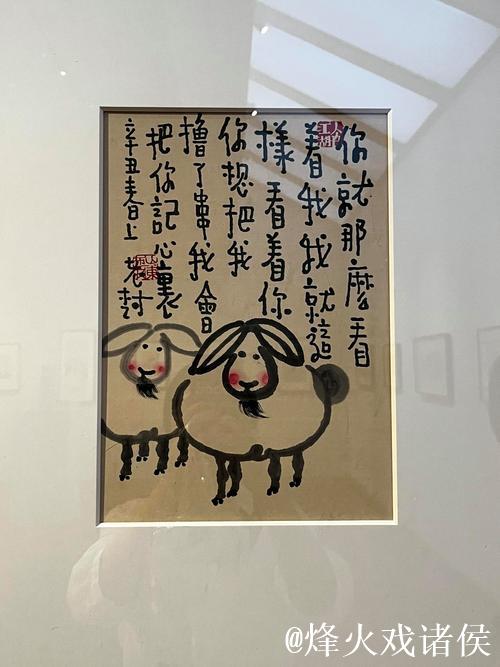 你就那麼看
着我我就這
樣看着你
你想把我
擼了串我會
把你記心裏
辛丑春日上
@烽火戏诸侯